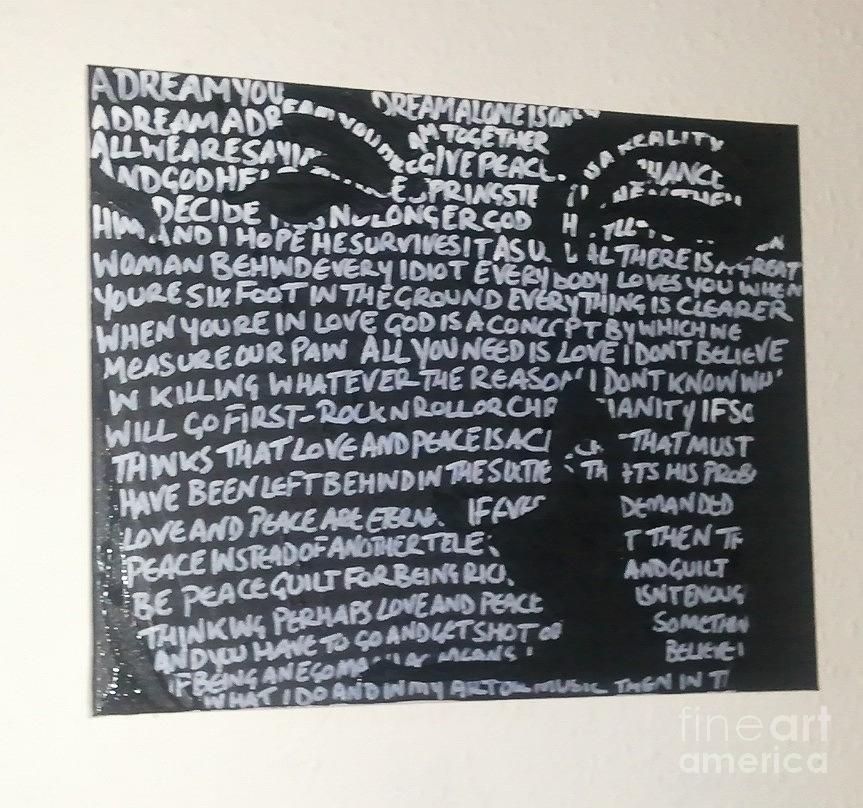 A DREAM YOU DREAM ALONE IS ONLY
A DREAM A DREAM YOU DREAM TOGETHER IS A REALITY
ALL WE ARE SAYIN GIVE PEACE CHANCE
AND GOD HE SPRINGSTE
DECIDE NO LONGER GOD
AND I HOPE HE SURVIVES IT AS U AL THERE IS A GREAT
WOMAN BEHIND EVERY IDIOT EVERYBODY LOVES YOU WHEN
YOURE SIX FOOT IN THE GROUND EVERYTHING IS CLEARER
WHEN YOURE IN LOVE GOD IS A CONCEPT BY WHICH WE
MEASURE OUR PAIN ALL YOU NEED IS LOVE I DONT BELIEVE
IN KILLING WHATEVER THE REASON I DONT KNOW WH
WILL GO FIRST-ROCK N ROLL OR CHR IANITY IF SO
THINKS THAT LOVE AND PEACE IS A CLI THAT MUST
HAVE BEEN LEFT BEHIND IN THE SIXTIE TH TS HIS PROB
LOVE AND PEACE ARE ETERN IF EVE DEMANDED
PEACE INSTEAD OF ANOTHER TELE T THEN TH
BE PEACE GUILT FOR BEING RIC AND GUILT
THINKING PERHAPS LOVE AND PEACE ISNT ENOUG
AND YOU HAVE TO GO AND GET SHOT OR SOMETHIN
IF BEING AN EGOMA MEANS I BELIEVE I
WHAT I DO AND IN MY ART OR MUSIC THEN IN T
fine art
america